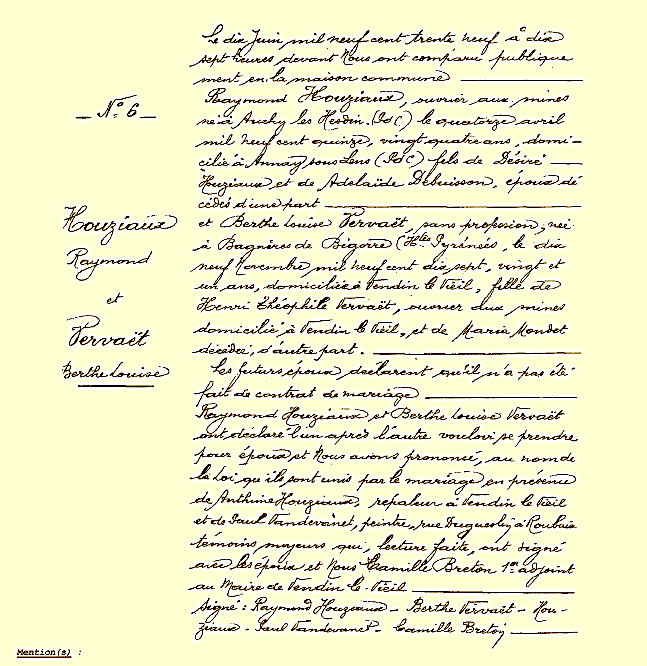 Le dix Juin mil neuf cent trente neuf à dix
sept heures devant Nous ont comparu publique
ment en la maison commune
— N° 6 —
Raymond Houziaux, ouvrier aux mines
né à Auchy les Hesdin (PdC) le quatorze avril
mil neuf cent quinze, vingt quatre ans, domi-
cilié à Annay sous Lens (PdC) fils de Désiré
Houziaux et de Adelaïde Debuisson, époux dé
cédés d'une part
Houziaux
Raymond
et
Vervaët
Berthe Louise
et Berthe Louise Vervaët, sans profession, née
à Bagnères de Bigorre (Htes Pyrénées, le dix
neuf Novembre mil neuf cent dix sept, vingt et
un ans, domiciliée à Vendin le Vieil, fille de
Henri Théophile Vervaët, ouvrier aux mines
domicilié à Vendin le Vieil, et de Marie Mondet
décédée, d'autre part.
Les futurs époux déclarent qu'il n'a pas été
fait de contrat de mariage
Raymond Houziaux et Berthe Louise Vervaët
ont déclaré l'un après l'autre vouloir se prendre
pour époux et Nous avons prononcé, au nom de
la Loi, qu'ils sont unis par le mariage en présence
de Houziaux, à Vendin le Vieil
et de Paul peintre, rue à Roubaix
témoins majeurs qui, lecture faite, ont signé
avec les époux et Nous Camille Breton 1er adjoint
au Maire de Vendin le Vieil
Signé : Raymond Houziaux – Berthe Vervaët – Hou-
ziaux – Paul – Camille Breton
Mention(s) :